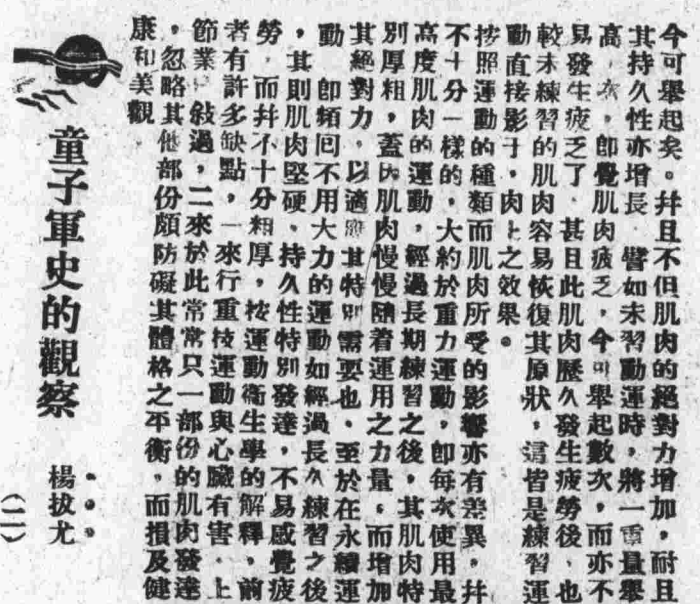 今可舉起矣。幷且不但肌肉的絕對力增加,耐且
其持久性亦增長 譬如未習動運時,將一重量舉
高 次,卽覺肌肉疲乏,今可舉起數次,而亦不
易發生疲乏了 甚且此肌肉歷久發生疲勞後,也
較未練習的肌肉容易恢復其原狀,這皆是練習運
動直接影于,肉上之效果。
按照運動的種類而肌肉所受的影響亦有差異,幷
不十分一樣的,大約於重力運動,卽每次使用最
高度肌肉的運動,經過長期練習之後,其肌肉特
別厚粗,蓋因肌肉慢慢隨着運用之力量,而增加
其絕對力,以適應其特別需要也,至於在永續運
動 卽頻囘不用大力的運動如經過長久練習之後
,其則肌肉堅硬,持久性特別發達,不易感覺疲
勞,而幷不十分粗厚,按運動衞生學的解釋,前
者有許多缺點,一來行重技運動與心臟有害,上
節業 敍過,二來於此常常只一部份的肌肉發達
,忽略其他部份頗防礙其體格之平衡,而損及健
康和美觀
童子軍史的觀察
楊拔尤
(二)